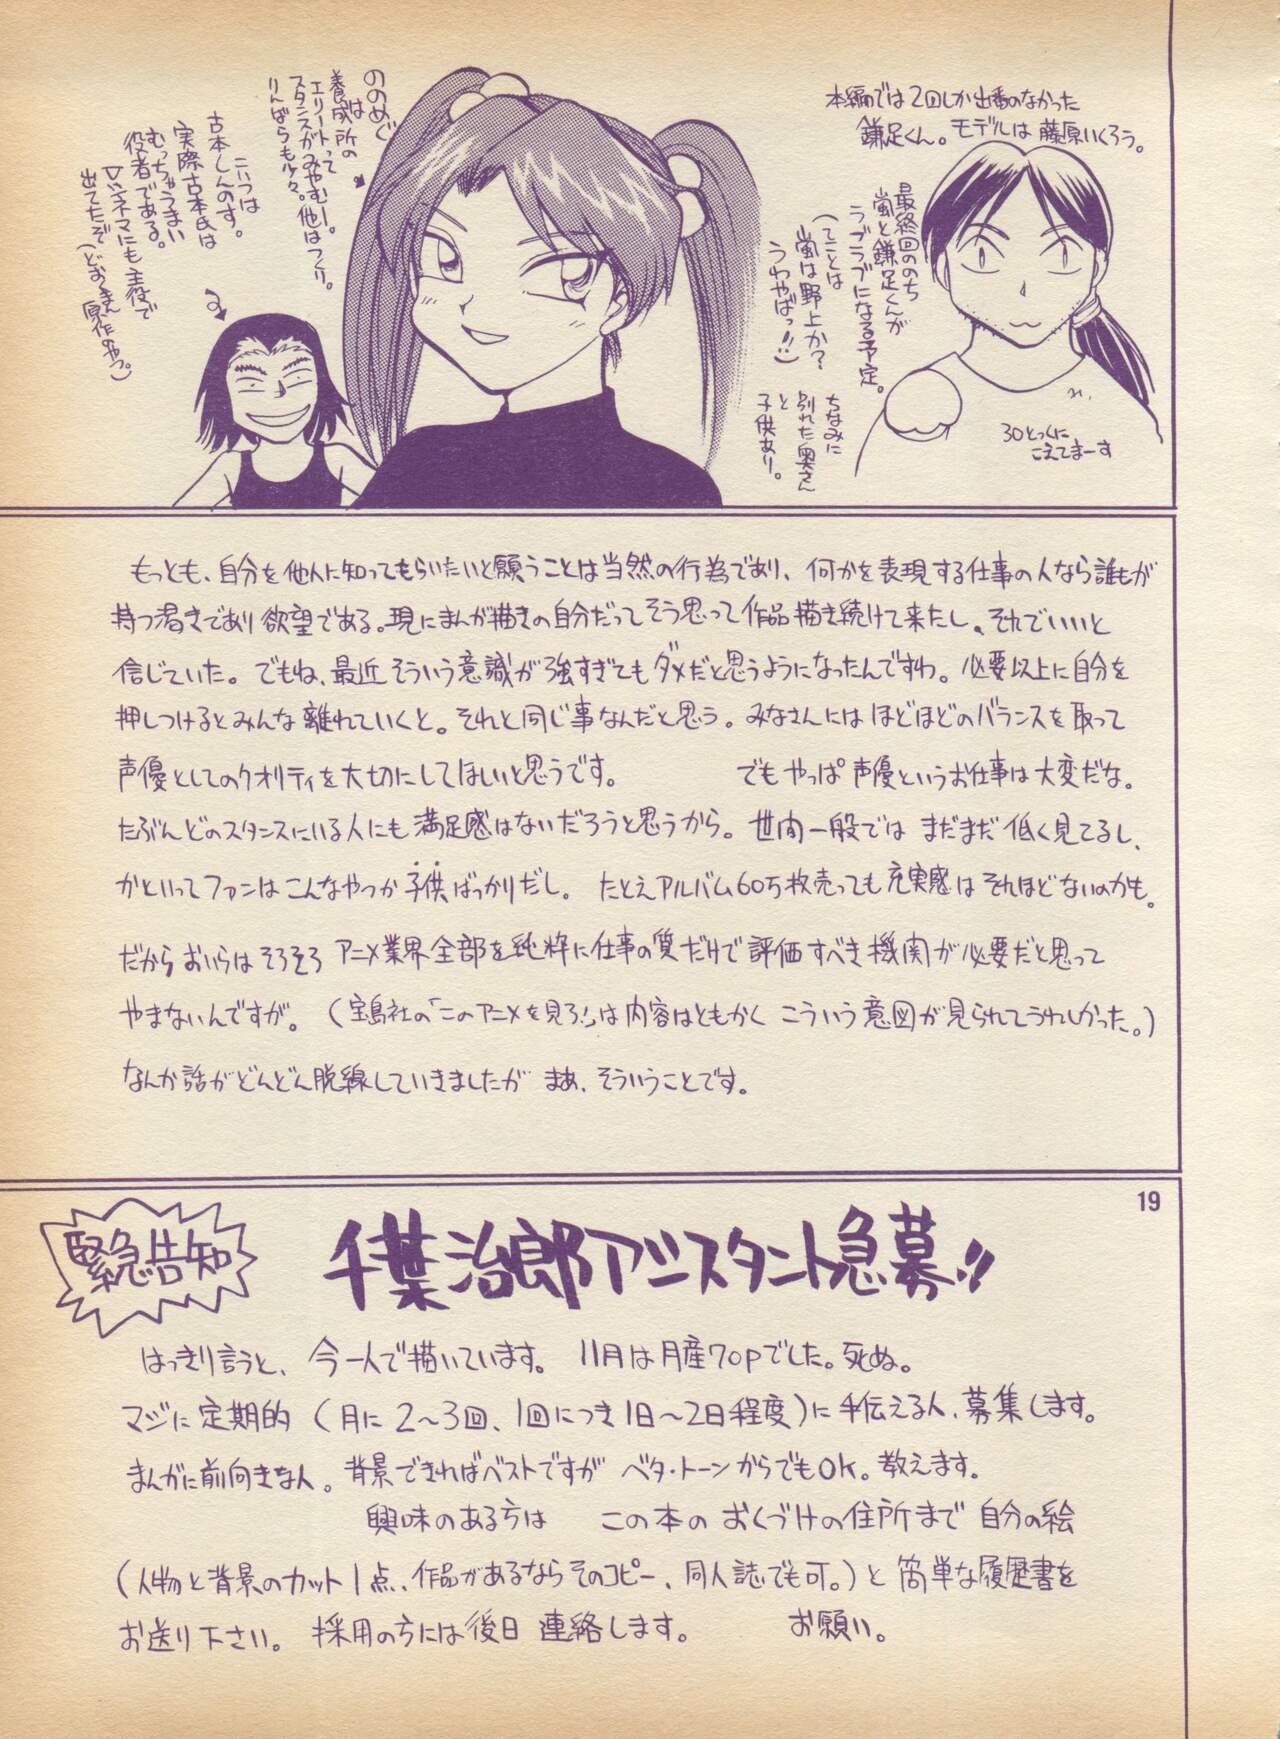 本編では2回しか出番のなかった
鎌足くん。モデルは藤原いくろう。
最終回ののち
嵐と鎌足くんが
ラブラブになる予定。
(てことは
嵐は野上か?
うわやばっ!!)
ちなみに
別れた奥さん
と
子供あり。
30とっくに
こえてまーす
ののめぐ
は
養成所の
エリートって
スタンスがみやむー。他はつくり。
りんばらもルタ。
こいつは
古本しんのす。
実際古本氏は
むっちゃうまい
役者である。
Vシネマにも主役で
出てたぞ(どおくまん
原作のやつ。)
もっとも、自分を他人に知ってもらいたいと願うことは当然の行為であり、何かを表現する仕事の人なら誰もが
持つ渇きであり欲望である。現にまんが描きの自分だってそう思って作品描き続けて来たし、それでいいと
信じていた。でもね、最近そういう意識が強すぎてもダメだと思うようになったんですわ。必要以上に自分を
押しつけるとみんな離れていくと。それと同じ事なんだと思う。みなさんにはほどほどのバランスを取って
声優としてのクオリティを大切にしてほしいと思うです。 でもやっぱ声優というお仕事は大変だな。
たぶんどのスタンスにいる人にも満足感はないだろうと思うから。世間一般ではまだまだ低く見てるし、
かといってファンはこんなやつか子供ばっかりだし。たとえアルバム60万枚売っても充実感はそれほどないのかも。
だからおいらはそろそろアニメ業界全部を純粋に仕事の質だけで評価すべき機関が必要だと思って
やまないんですが。(宝島社の「このアニメを見ろ!」は内容はともかくこういう意図が見られてうれしかった。)
なんか話がどんどん脱線していきましたがまあ、そういうことです。
19
緊急告知
千葉治郎アシスタント急募!!
はっきり言うと、今一人で描いています。11月は月産70pでした。死ぬ。
マジに定期的(月に2〜3回、1回につき1日〜2日程度)に手伝える人、募集します。
まんがに前向きな人。背景できればベストですがベタ・トーンからでもOK。教えます。
興味のある方は この本のおくづけの住所まで自分の絵
(人物と背景のカット1点、作品があるならそのコピー、同人誌でも可。)と簡単な履歴書を
お送り下さい。採用の方には後日連絡します。 お願い。